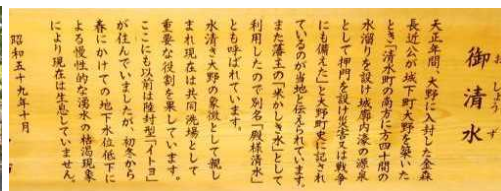 御清水
おしょず
天正年間、大野に入封した金森
長近公が城下町大野を築いた
とき「清水町の南方に方四十間の
水溜りを設け城廓内濠の源泉
として押門を設け災害又は戦争
にも備えた」と大野町史に記され
ているのが当地と伝えられています。
また藩主の「米かしき水」として
利用したので別名「殿様清水」
とも呼ばれています。
水清き大野の象徴として親し
まれ現在は共同洗場として
重要な役割を果しています。
ここにも以前は陸封型「イトヨ」
が住んでいましたが、初冬から
春にかけての地下水位低下に
よる慢性的な湧水の枯渇現象
により現在は生息していません。
昭和五十九年十月